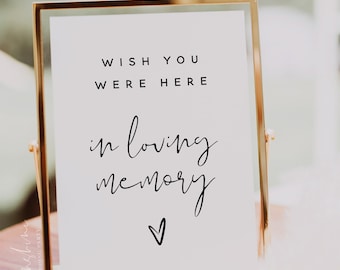 WISH YOU
WERE HERE
in loving
memory